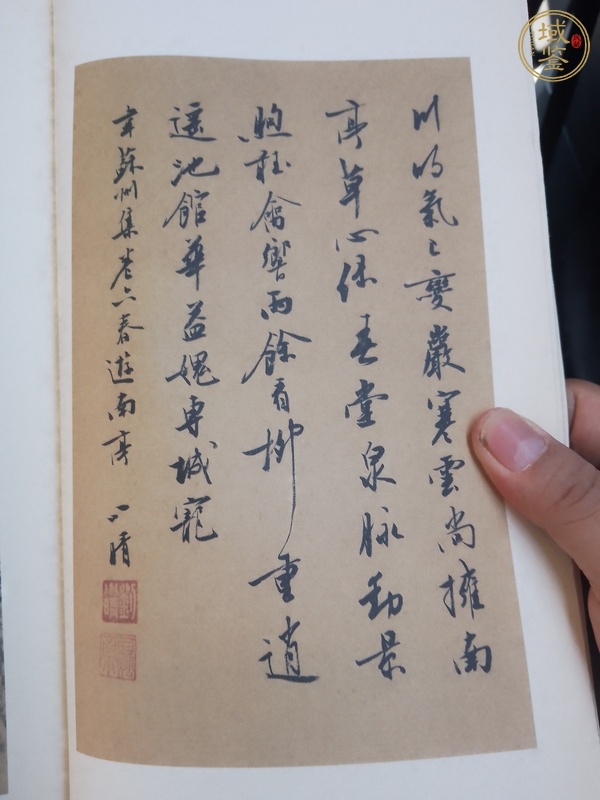 川明氣已變巖寒雲尚擁南
亭草心緑春堂泉脉動景
煦聽禽響雨餘看柳重逍
遥池館華益愧専城寵
韋蘇州集卷六春遊南亭
域鉴